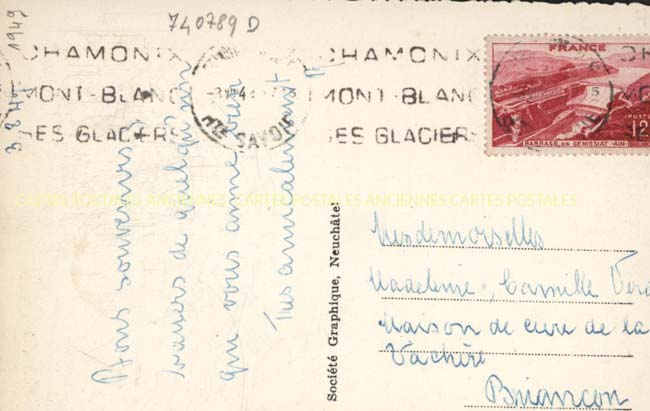 740789 D
1949
3.8.49
CHAMONIX
MONT-BLANC
SES GLACIERS
HTE SAVOIE
CHAMONIX
MONT-BLANC
SES GLACIERS
FRANCE
POSTES
12
BARRAGE DE GENISSIAT -AIN-
CH
MO
SE
CARTES POSTALES ANCIENNES CARTES POSTALES ANCIENNES CARTES POSTALES
Bons souvenirs
de quelqu'un
qui vous aime bien
Très amicalement
Société Graphique, Neuchâtel
Mesdemoiselles
Madeleine, Camille
Maison de cure de la
Vachère
Briançon